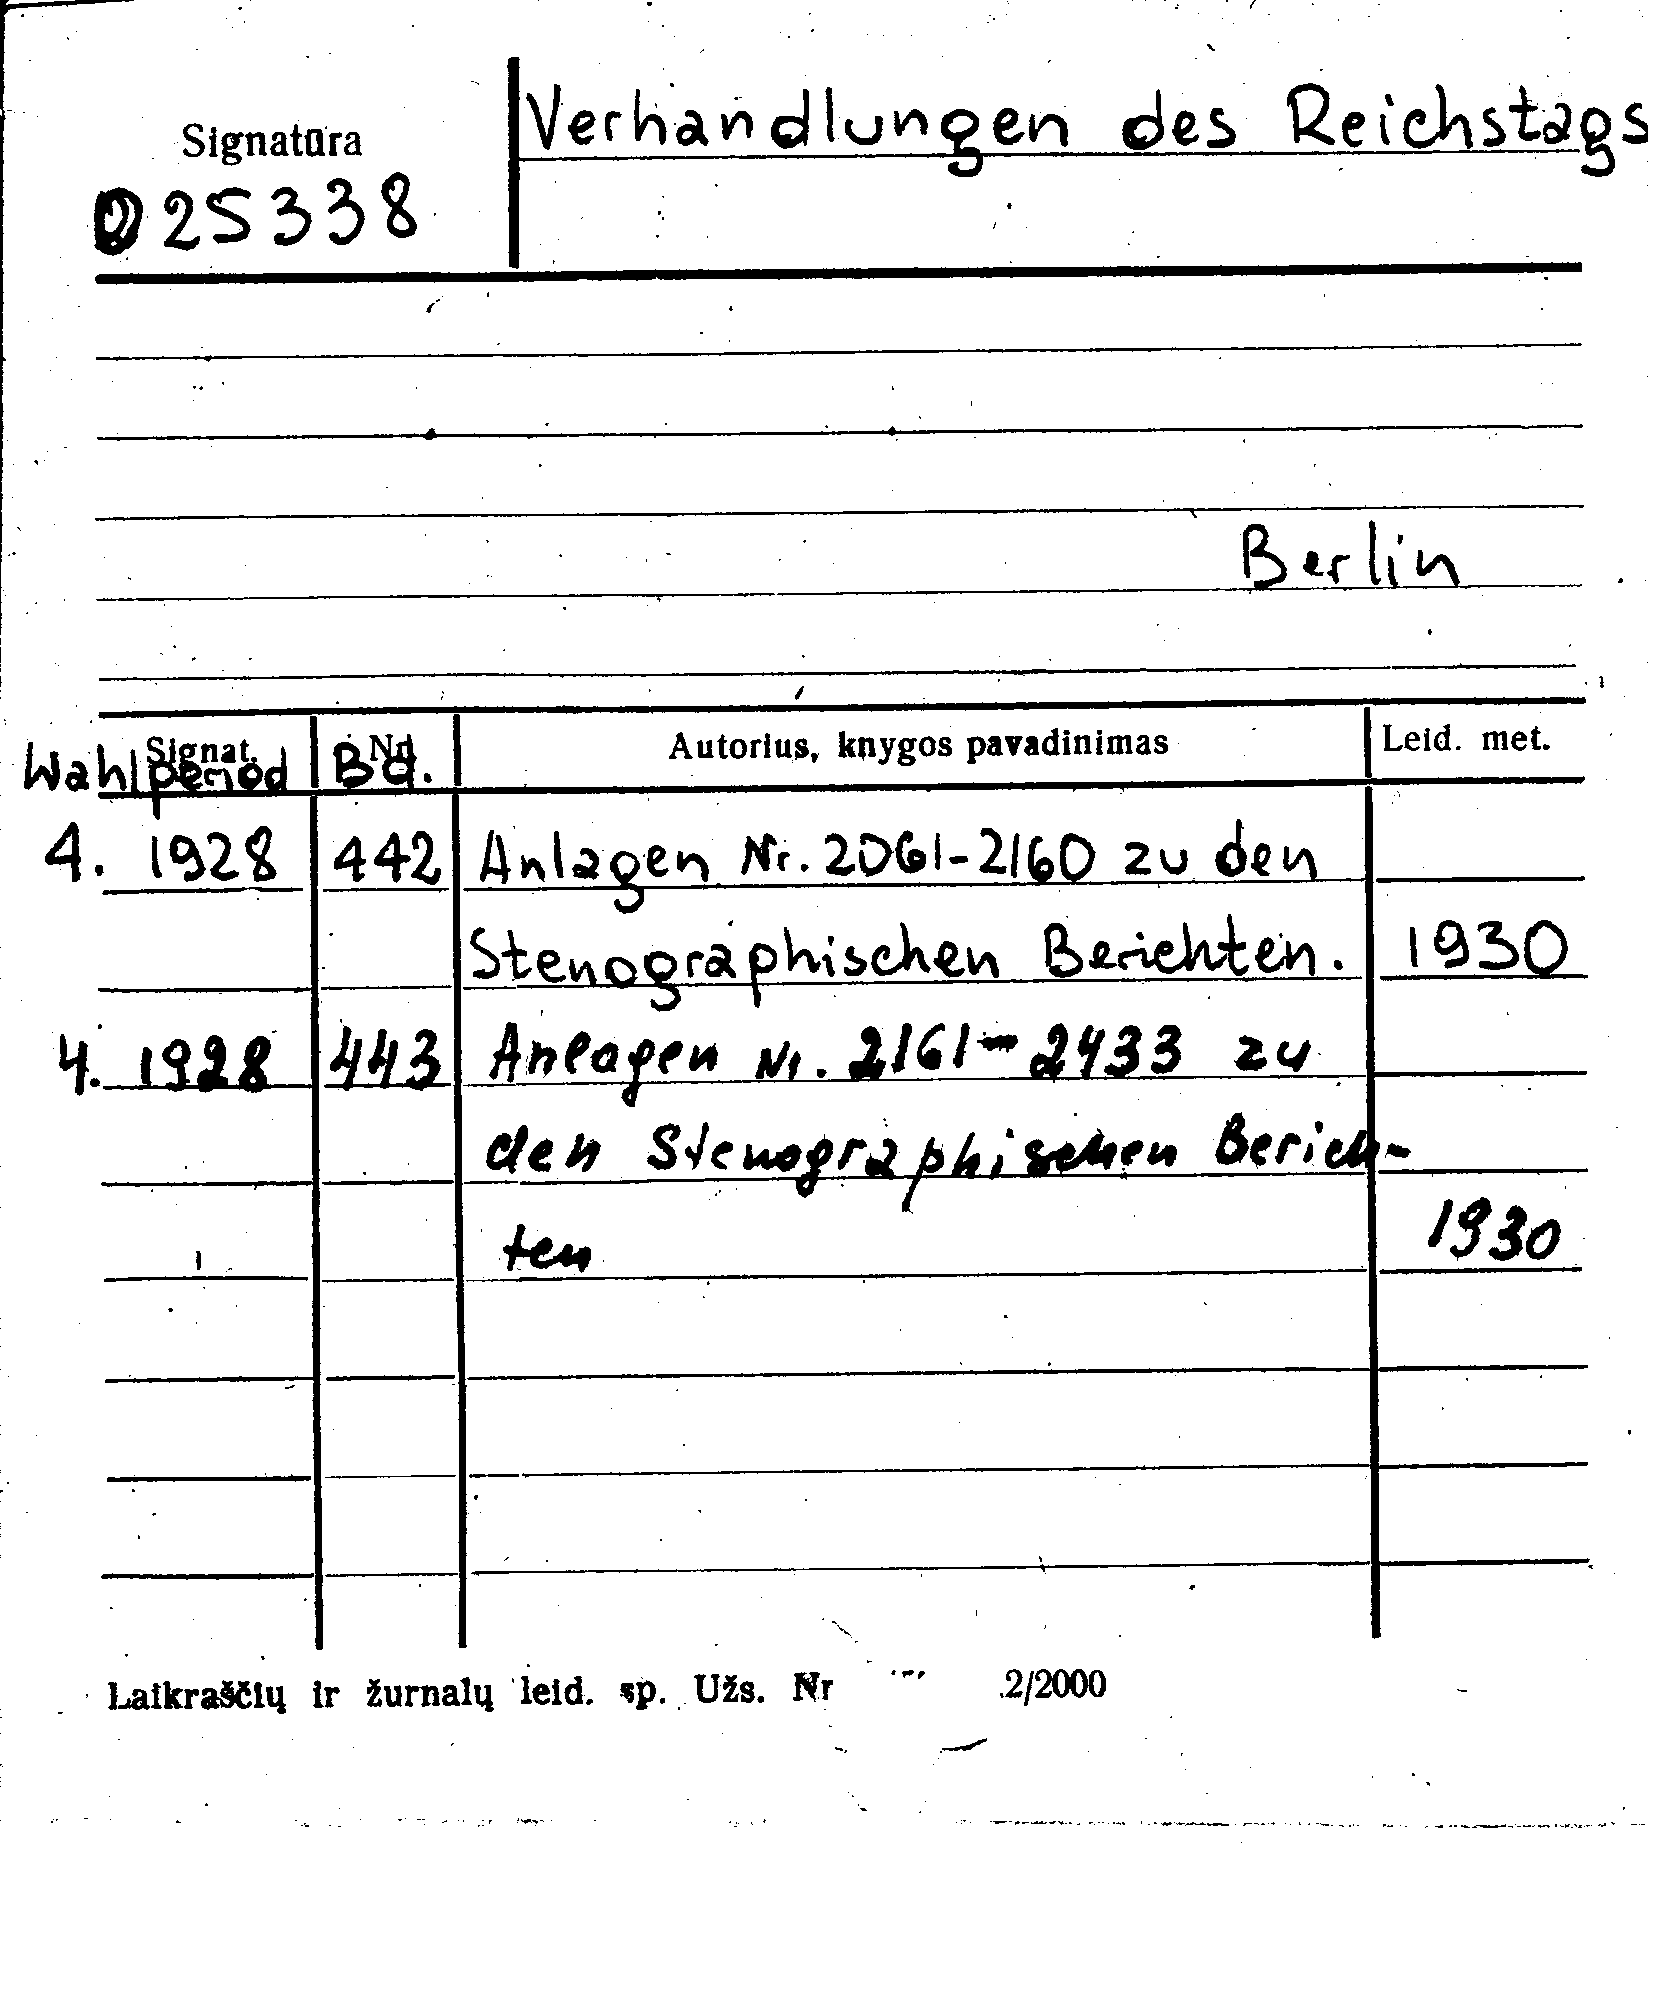 Verhandlungen des Reichstags
Signatūra
25338
Berlin
Signat. Nr. Autorius, knygos pavadinimas Leid. met.
Wahlperiod Bd.
4. 1928 442 Anlagen Nr. 2061-2160 zu den
Stenographischen Berichten. 1930
4. 1928 443 Anlagen Nr. 2161-2433 zu
den Stenographischen Berich-
ten 1930
Laikraščių ir žurnalų leid. sp. Užs. Nr 2/2000